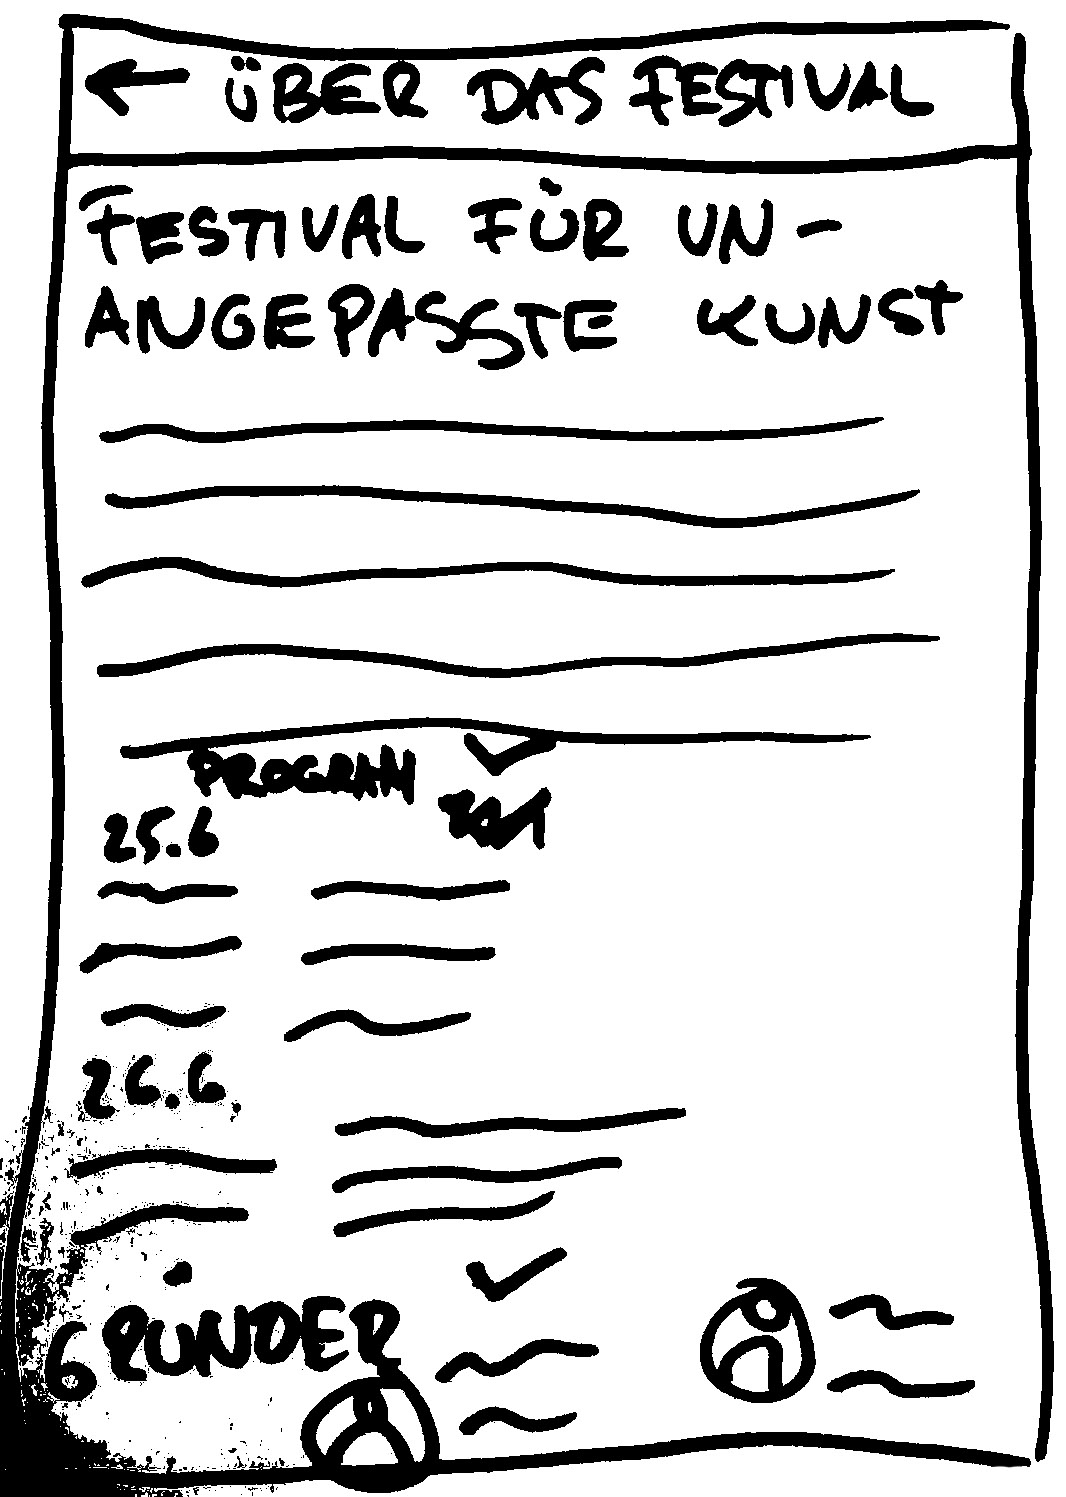 ÜBER DAS FESTIVAL
FESTIVAL FÜR UN-
ANGEPASSTE KUNST
PROGRAM
25.6
26.6.
GRÜNDER